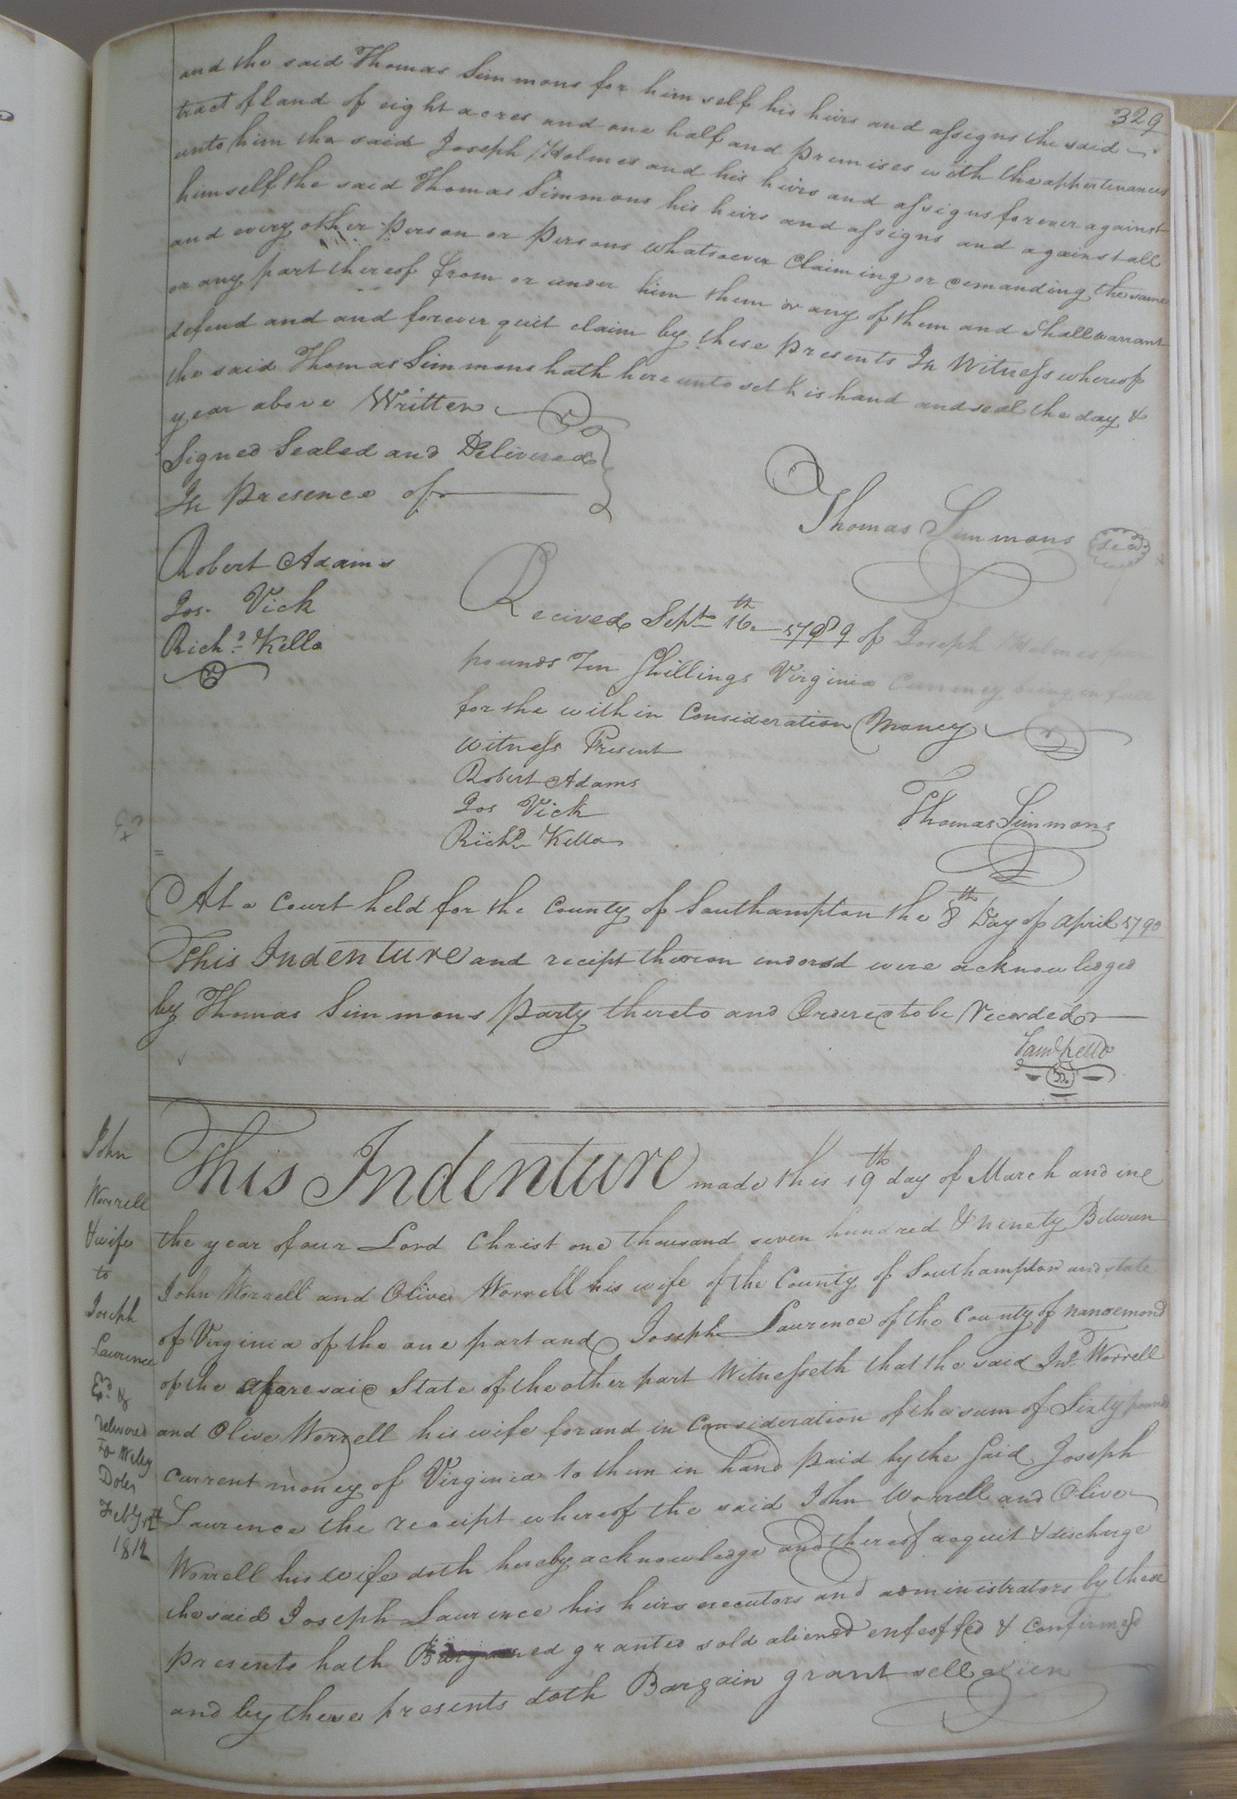 329
and the said Thomas Simmons for him self his heirs and assigns the said
tract of land of eight acres and one half and premises with the appertenances
unto him the said Joseph Holmes and his heirs and assigns forever against
himself the said Thomas Simmons his heirs and assigns and against all
and every other Person or Persons whatsoever Claiming or demanding the same
or any part thereof from or under him them or any of them and shall warrant
defend and and forever quit claim by these Presents In Witness whereof
the said Thomas Simmons hath here unto set his hand and seal the day &
year above Written
Signed Sealed and Delivered
In Presence of
Thomas Simmons
Seal
Robert Adams
Jos. Vick
Richd. Kello
Recived Septr 16th 1789 of Joseph Holmes
pounds Ten Shillings Virginia Currency being in full
for the with in Consideration Money
Witness Present
Robert Adams
Jos Vick
Richd Kello
Thomas Simmons
At a Court held for the County of Southampton the 8th Day of April 1790
This Indenture and recipt thereon indorsd were acknowledged
by Thomas Simmons Party thereto and Ordered to be Recorded
Saml Kello
John
Worrell
& wife
to
Joseph
Lawrence
Exd &
Delivered
To Wiley
Doles
Feby
1812
This Indenture made this 19th day of March and one
the year of our Lord Christ one thousand seven hundred & ninety Between
John Worrell and Olive Worrell his wife of the County of Southampton and state
of Virginia of the one part and Joseph Lawrence of the County of nansemond
of the aforesaid State of the other part Witnesseth that the said Jno. Worrell
and Olive Worrell his wife for and in Consideration of the sum of Sixty pounds
current money of Virginia to them in hand Paid by the Said Joseph
Lawrence the receipt whereof the said John Worrell and Olive
Worrell his wife doth hereby acknowledge and thereof acquit & discharge
the said Joseph Lawrence his heirs executors and administrators by these
Presents hath Bargained granted sold aliened enfeoffed & Confirmed
and by these presents doth Bargain grant sell alien